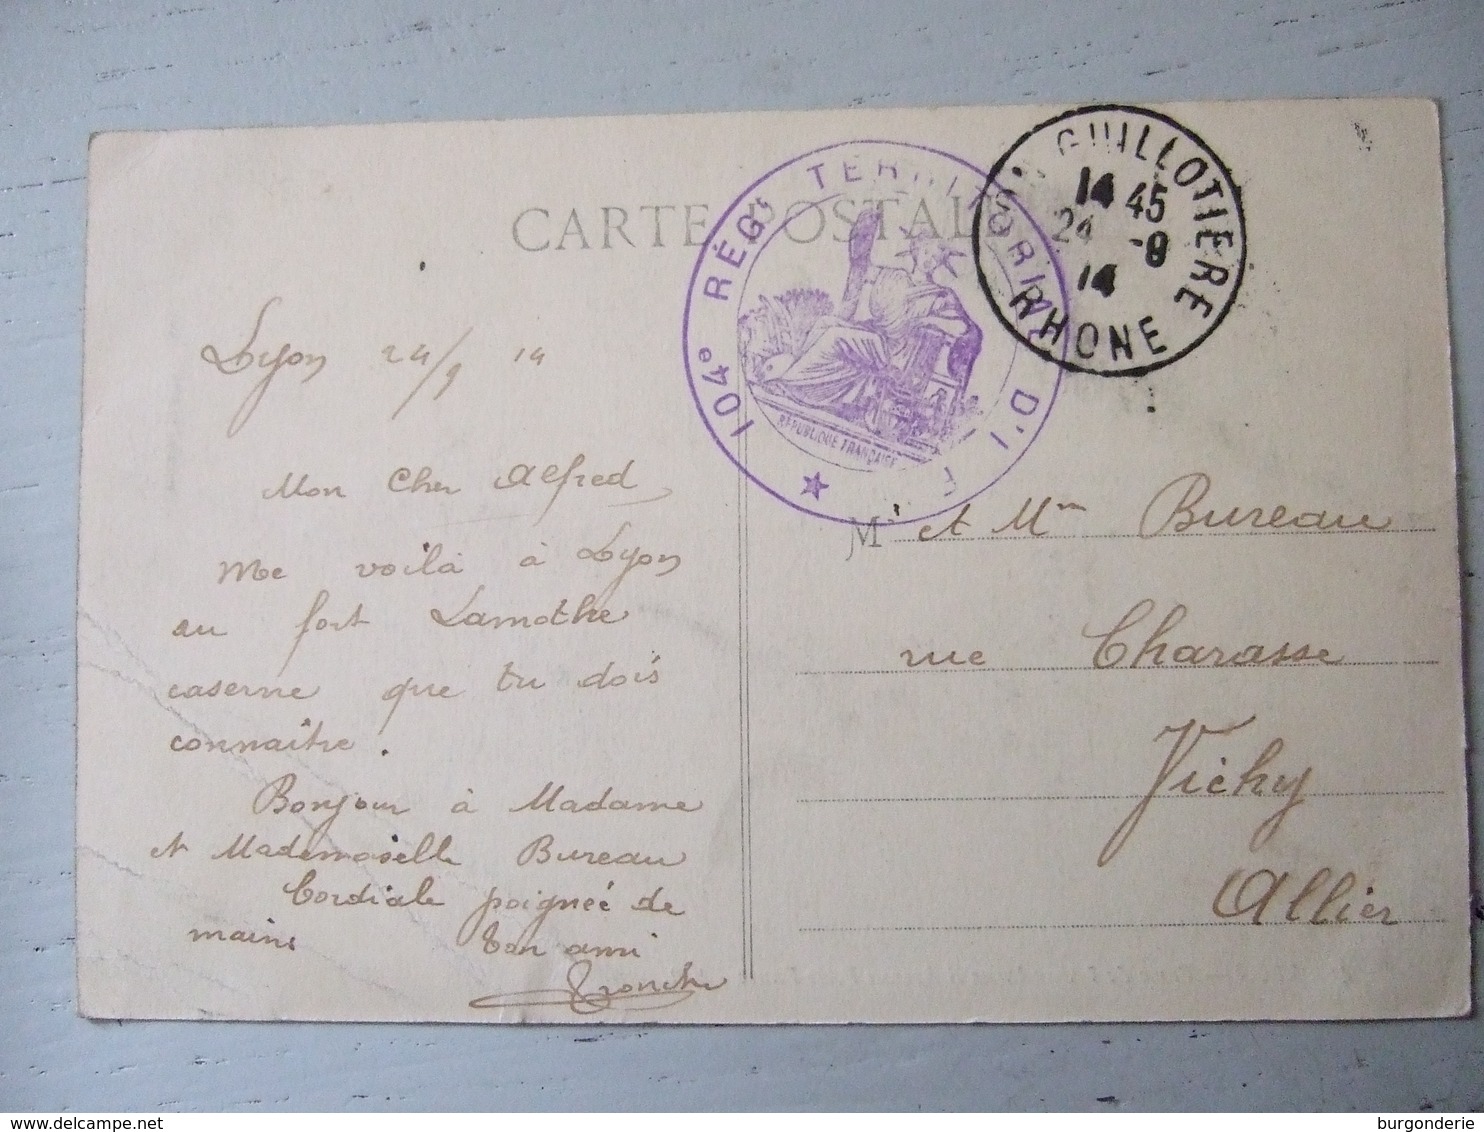 CARTE POSTALE
104e RÉGt TERRITORIAL D'INF
RÉPUBLIQUE FRANÇAISE
GUILLOTIERE
14 45
24 -9
14
RHONE
Lyon 24/9 14
Mon Cher Alfred
Me voilà à Lyon
au fort Lamothe
caserne que tu dois
connaître.
Bonjour à Madame
et Mademoiselle Bureau
Cordiale poignée de
main. Ton ami
Tronche
M et Mm Bureau
rue Charasse
Vichy
Allier
burgonderie